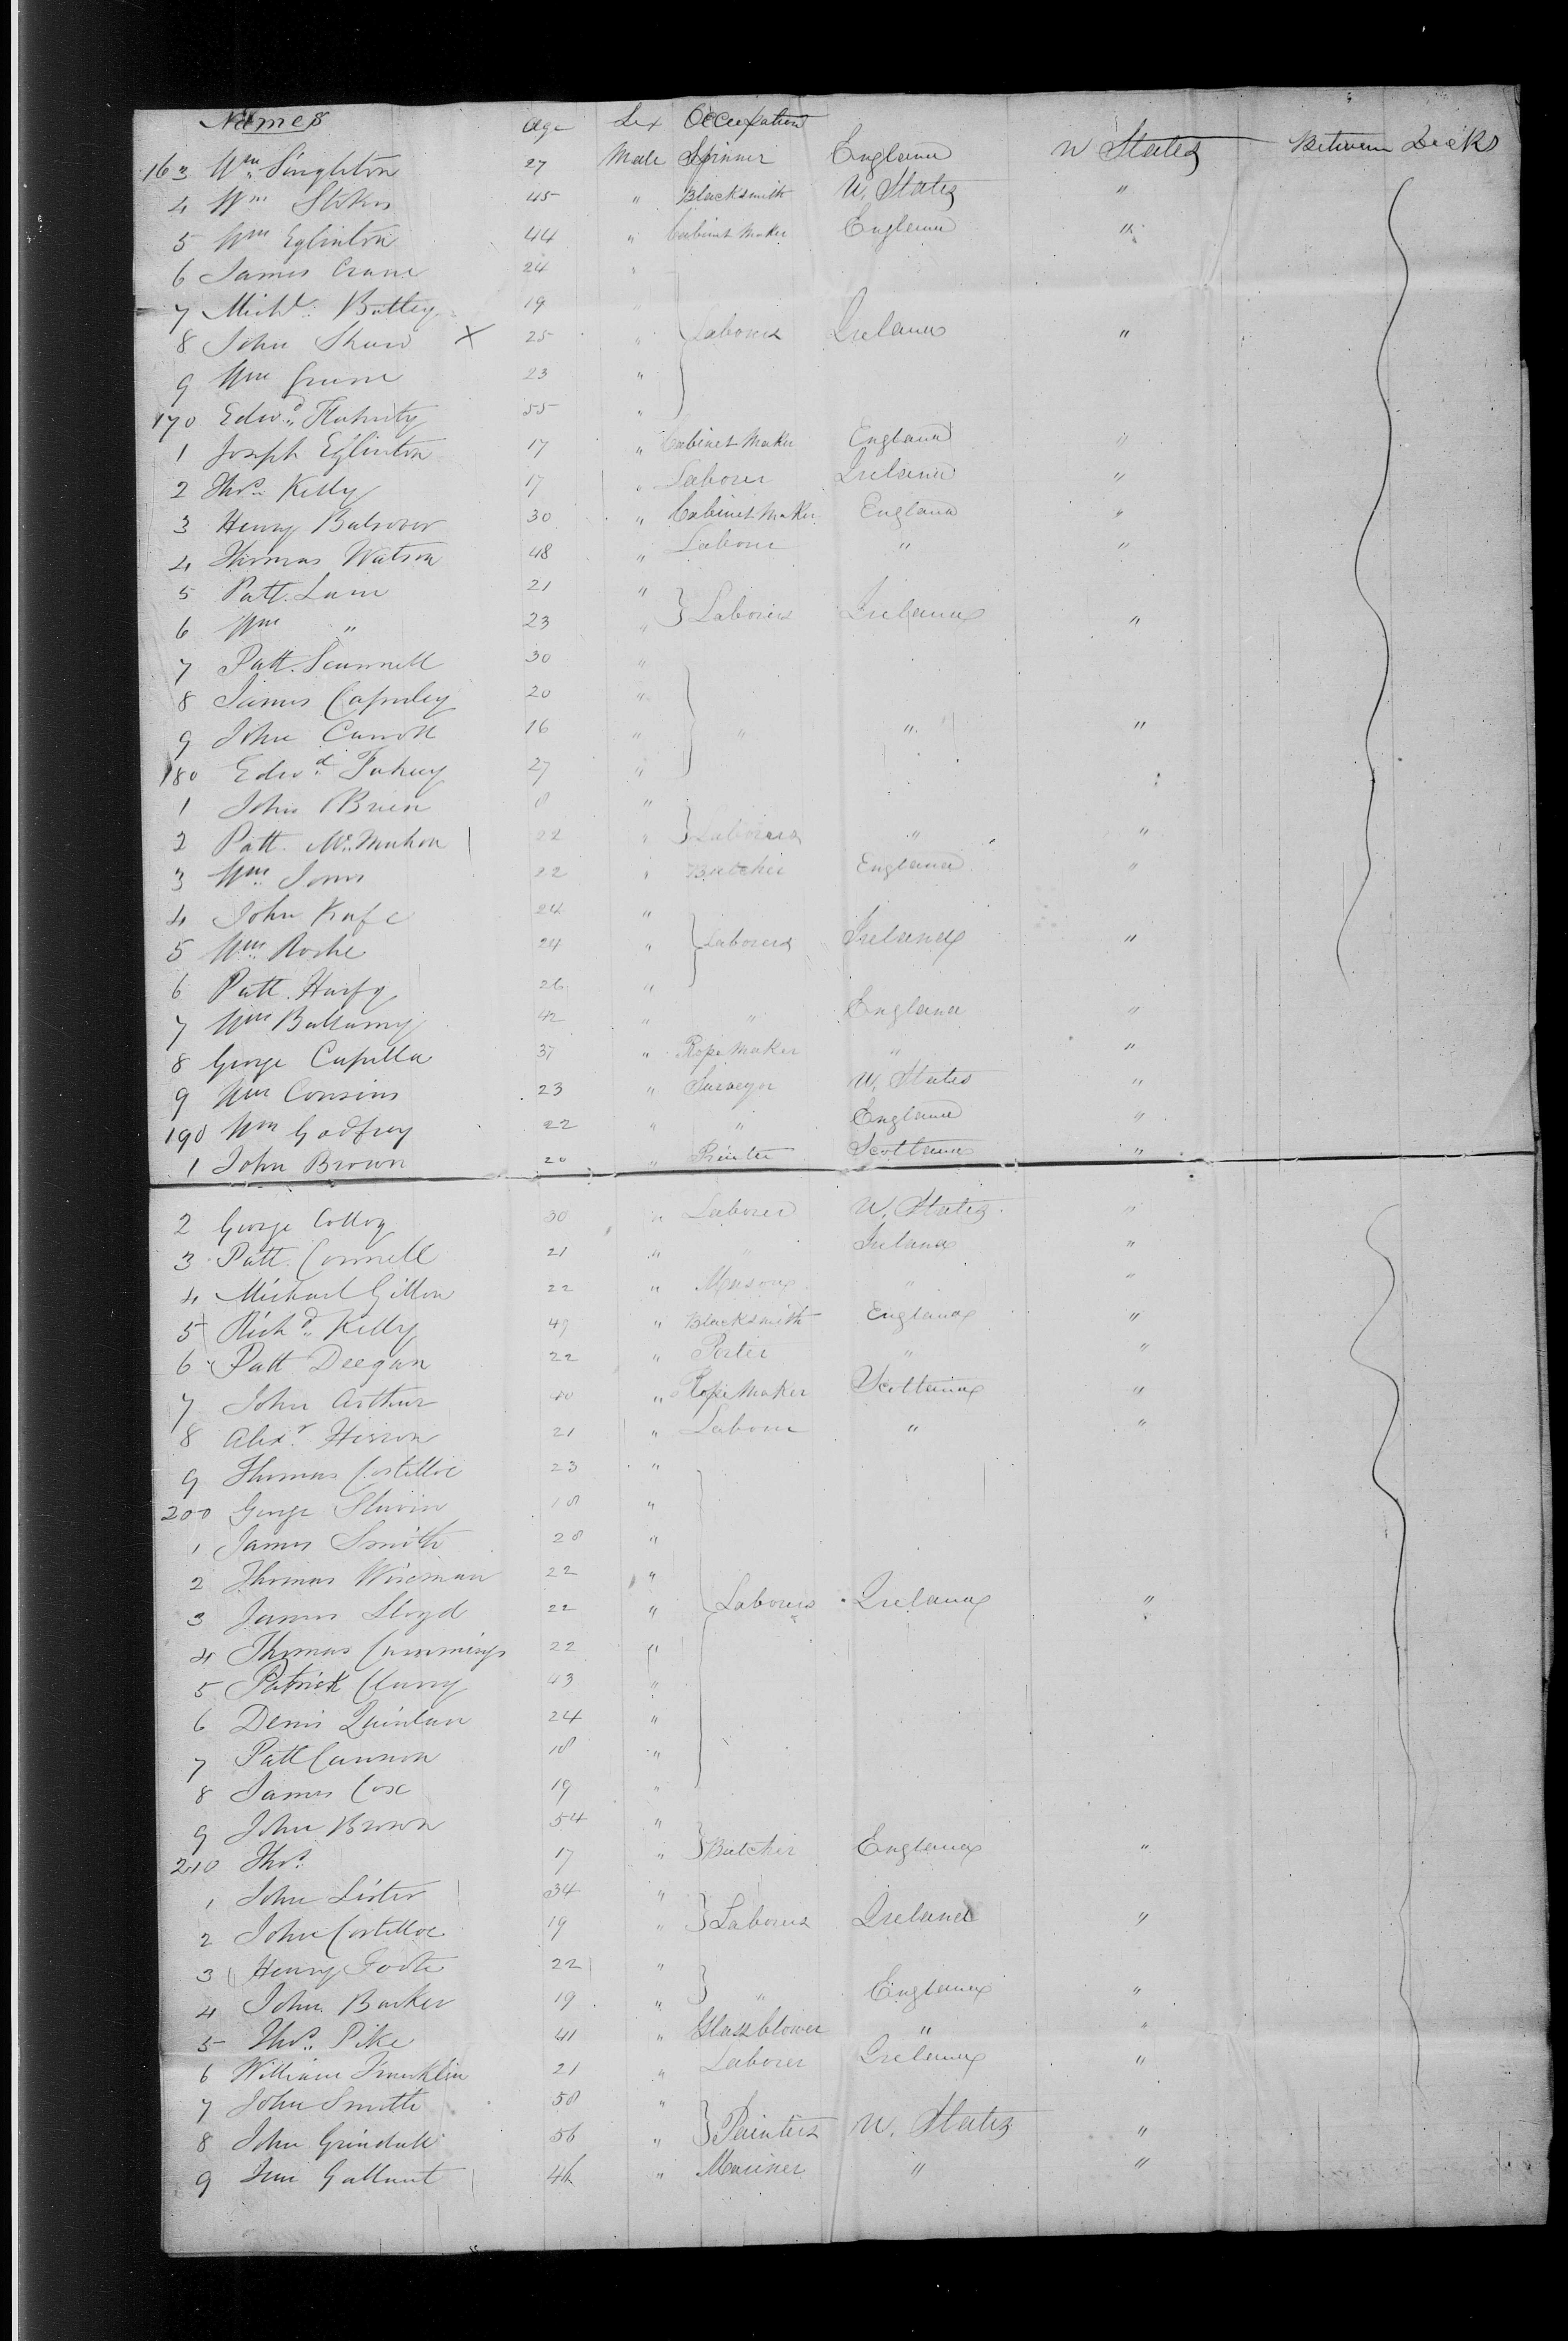 Names Age Sex Occupation
163 Wm Singleton 27 Male Spinner England U States Between Decks
4 Wm Stokes 45 " Blacksmith U. States "
5 Wm Eglinton 44 " Cabinet Maker England "
6 James Crane 24 "
7 Michl Battey 19 "
8 John Shaw X 25 " Laborers Ireland "
9 Wm 23 "
170 Edwd Flaherty 55 "
1 Joseph Eglinton 17 " Cabinet Maker England "
2 Thos Kelly 17 " Laborer Ireland "
3 Henry Balsover 30 " Cabinet Maker England "
4 Thomas Watson 48 " Laborer " "
5 Patt. Lane 21 "
6 Wm " 23 " Laborers Ireland "
7 Patt. Scannell 30 "
8 James 20 "
9 John Carroll 16 " " " "
180 Edwd Fahey 27 "
1 John OBrien 8 "
2 Patt. McMahon 22 " Laborers " "
3 Wm Jones 22 " Butcher England "
4 John 24 "
5 Wm Roche 24 " Laborers Ireland "
6 Patt. 26 "
7 Wm Ballamy 42 " " England "
8 George Capella 37 " Rope Maker " "
9 Wm Cousins 23 " Surveyor U. States "
190 Wm Godfrey 22 " " England "
1 John Brown 20 " Printer Scotland "
2 George Colloy 30 " Laborer U. States "
3 Patt. Connell 21 " " Ireland "
4 Michael Gillon 22 " Mason " "
5 Richd Kelly 49 " Blacksmith England "
6 Patt Deegan 22 " Porter " "
7 John Arthur 40 " Rope Maker Scotland "
8 Alexr Hirron 21 " Laborer " "
9 Thomas Costelloe 23 "
200 George Slavin 18 "
1 James Smith 28 "
2 Thomas Wiseman 22 "
3 James Lloyd 22 " Laborers Ireland "
4 Thomas Cummings 22 "
5 Patrick Clurry 43 "
6 Denis Quinlan 24 "
7 Patt Cannon 18 "
8 James Cox 19 "
9 John Brown 54 "
210 Thos 17 " Butcher England "
1 John Lister 34 "
2 John Costelloe 19 " Laborers Ireland "
3 Henry Foote 22 "
4 John Barker 19 " " England "
5 Thos Pike 41 " Glassblower " "
6 William Franklin 21 " Laborer Ireland "
7 John Smith 58 "
8 John Grindall 56 " Painters U. States "
9 Gallant " Mariner " "